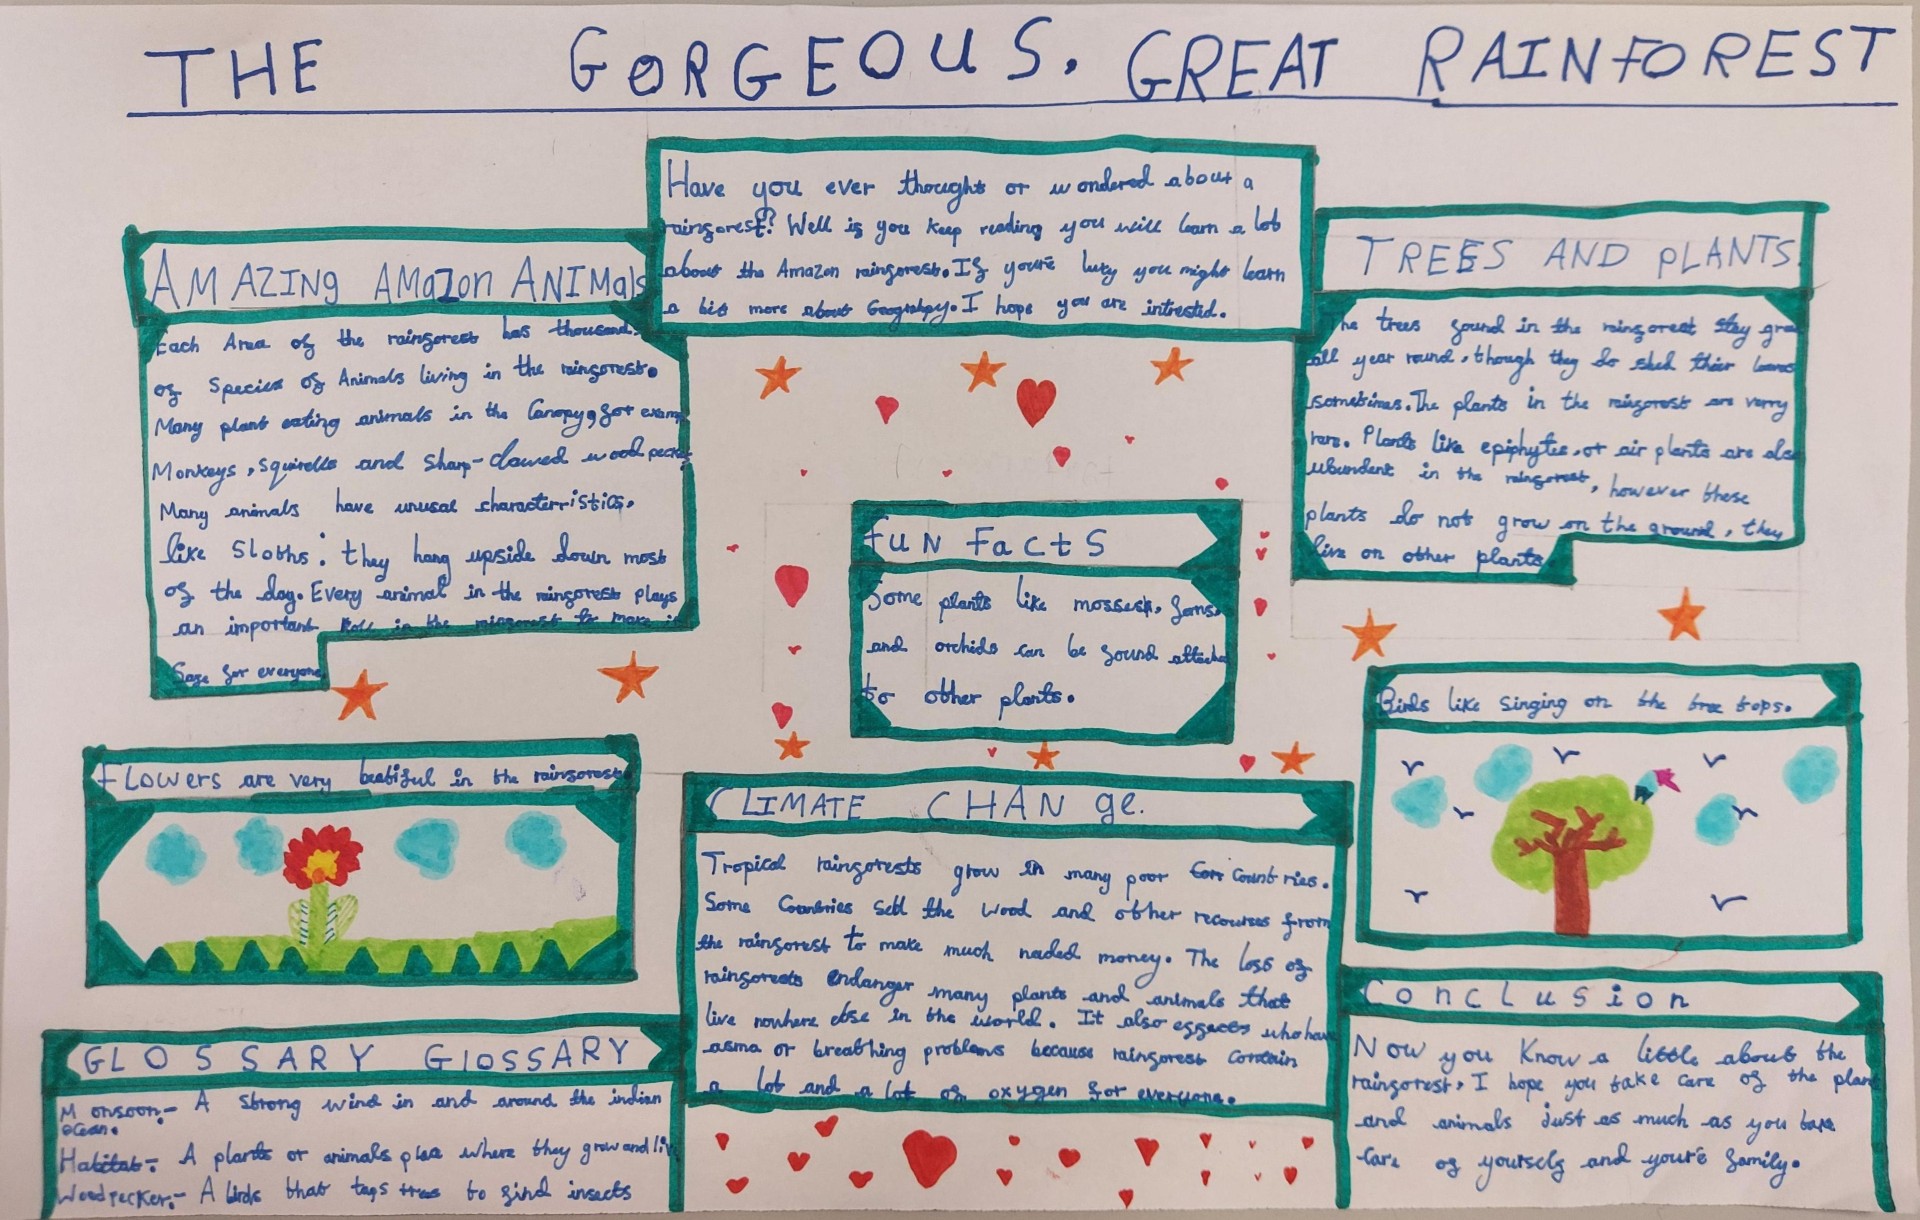 THE GORGEOUS. GREAT RAINFOREST
Have you ever thought or wondered about a
rainforest? Well if you keep reading you will learn a lot
about the Amazon rainforest. If you're lucy you might learn
a bit more about Geograhpy. I hope you are intrested.
AMAZING AMazon ANIMals
Each Area of the rainforest has thousand.
of Species of Animals living in the rainforest.
Many plant eating animals in the Canopy, for examp
Monkeys, squirells and sharp-clawed wood peck
Many animals have unusal characterristics.
like Sloths: they hang upside down most
of the day. Every animal in the rainforest plays
an important Roll in the rainforest to make it
Safe for everyone
TREES AND PLANTS.
The trees found in the rainforest stay gree
all year round, though they do shed their leaves
sometimes. The plants in the rainforest are verry
rare. Plants like epiphytes, or air plants are also
ubundent in the rainforest, however these
plants do not grow on the ground, they
live on other plants
fuN FacTS
Some plants like mosses, ferns
and orchids can be found attached
to other plants.
Flowers are very beatiful in the rainforest
Birds like singing on the tree tops.
CLIMATE CHANge.
Tropical rainforests grow in many poor Countries.
Some Countries sell the wood and other recourses from
the rainforest to make much needed money. The loss of
rainforests endanger many plants and animals that
live nowhere else in the world. It also effects who have
asma or breathing problems because rainforest contain
a lot and a lot of oxygen for everyone.
ConcLusion
Now you Know a little about the
rainforest, I hope you take care of the plant
and animals just as much as you take
care of yourself and you're family.
GLOSSARY GlOSSARY
Monsoon:- A strong wind in and around the indian
ocean.
Habitat:- A plants or animals place where they grow and liv
Woodpecker:- A birds that taps trees to find insects